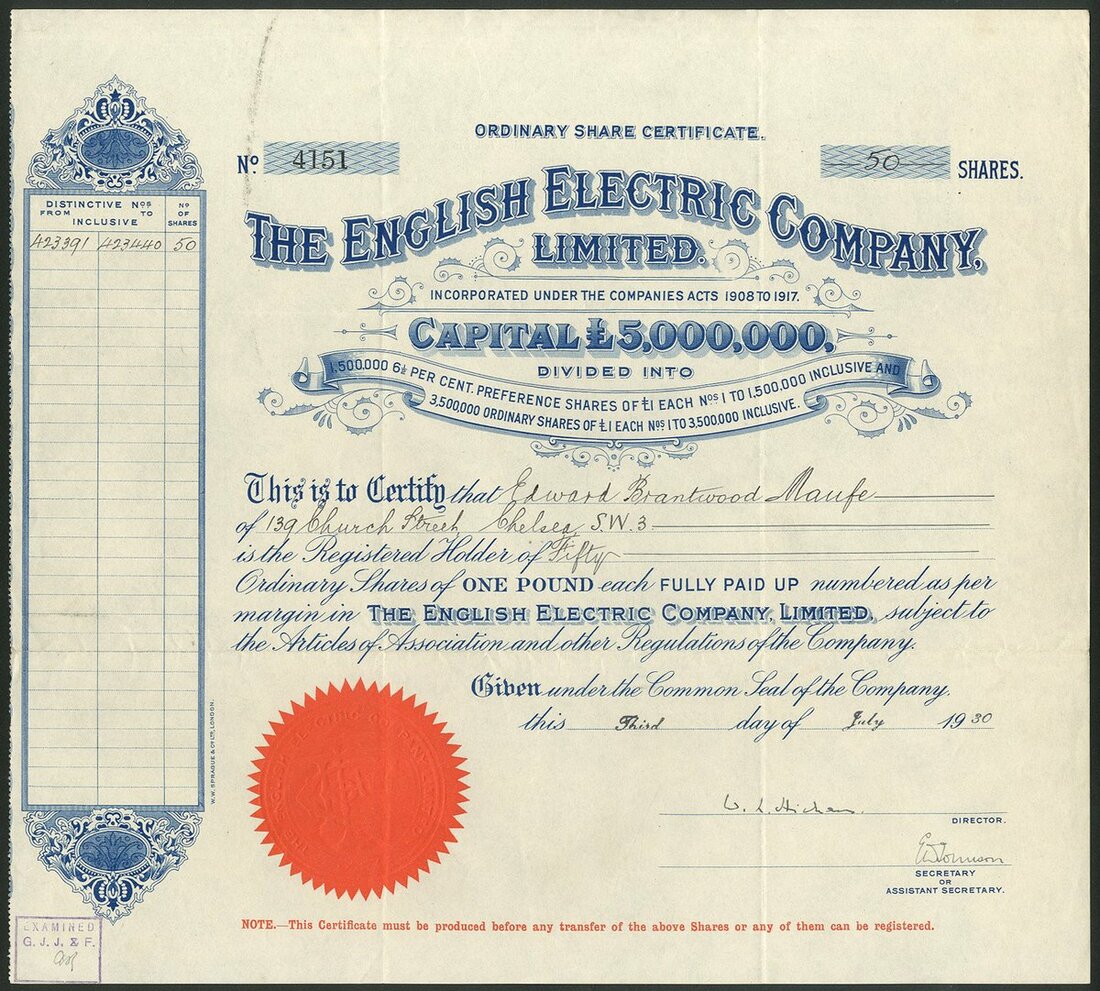 ORDINARY SHARE CERTIFICATE.
Nº 4151
50 SHARES.
THE ENGLISH ELECTRIC COMPANY,
LIMITED.
INCORPORATED UNDER THE COMPANIES ACTS 1908 TO 1917.
CAPITAL £5,000,000,
DIVIDED INTO
1,500,000 6½ PER CENT. PREFERENCE SHARES OF £1 EACH Nos 1 TO 1,500,000 INCLUSIVE AND
3,500,000 ORDINARY SHARES OF £1 EACH Nos 1 TO 3,500,000 INCLUSIVE.
DISTINCTIVE Nos
FROM TO
INCLUSIVE
Nº
OF
SHARES
423391 423440 50
This is to Certify that Edward Brantwood Maufe
of 139 Church Street, Chelsea, S.W.3
is the Registered Holder of Fifty
Ordinary Shares of ONE POUND each FULLY PAID UP numbered as per
margin in THE ENGLISH ELECTRIC COMPANY, LIMITED, subject to
the Articles of Association and other Regulations of the Company.
Given under the Common Seal of the Company.
this Third day of July 1930
W. L. Hichens
DIRECTOR.
SECRETARY
OR
ASSISTANT SECRETARY.
W.W. SPRAGUE & Co LTD, LONDON.
NOTE.—This Certificate must be produced before any transfer of the above Shares or any of them can be registered.
EXAMINED
G. J. J. & F.